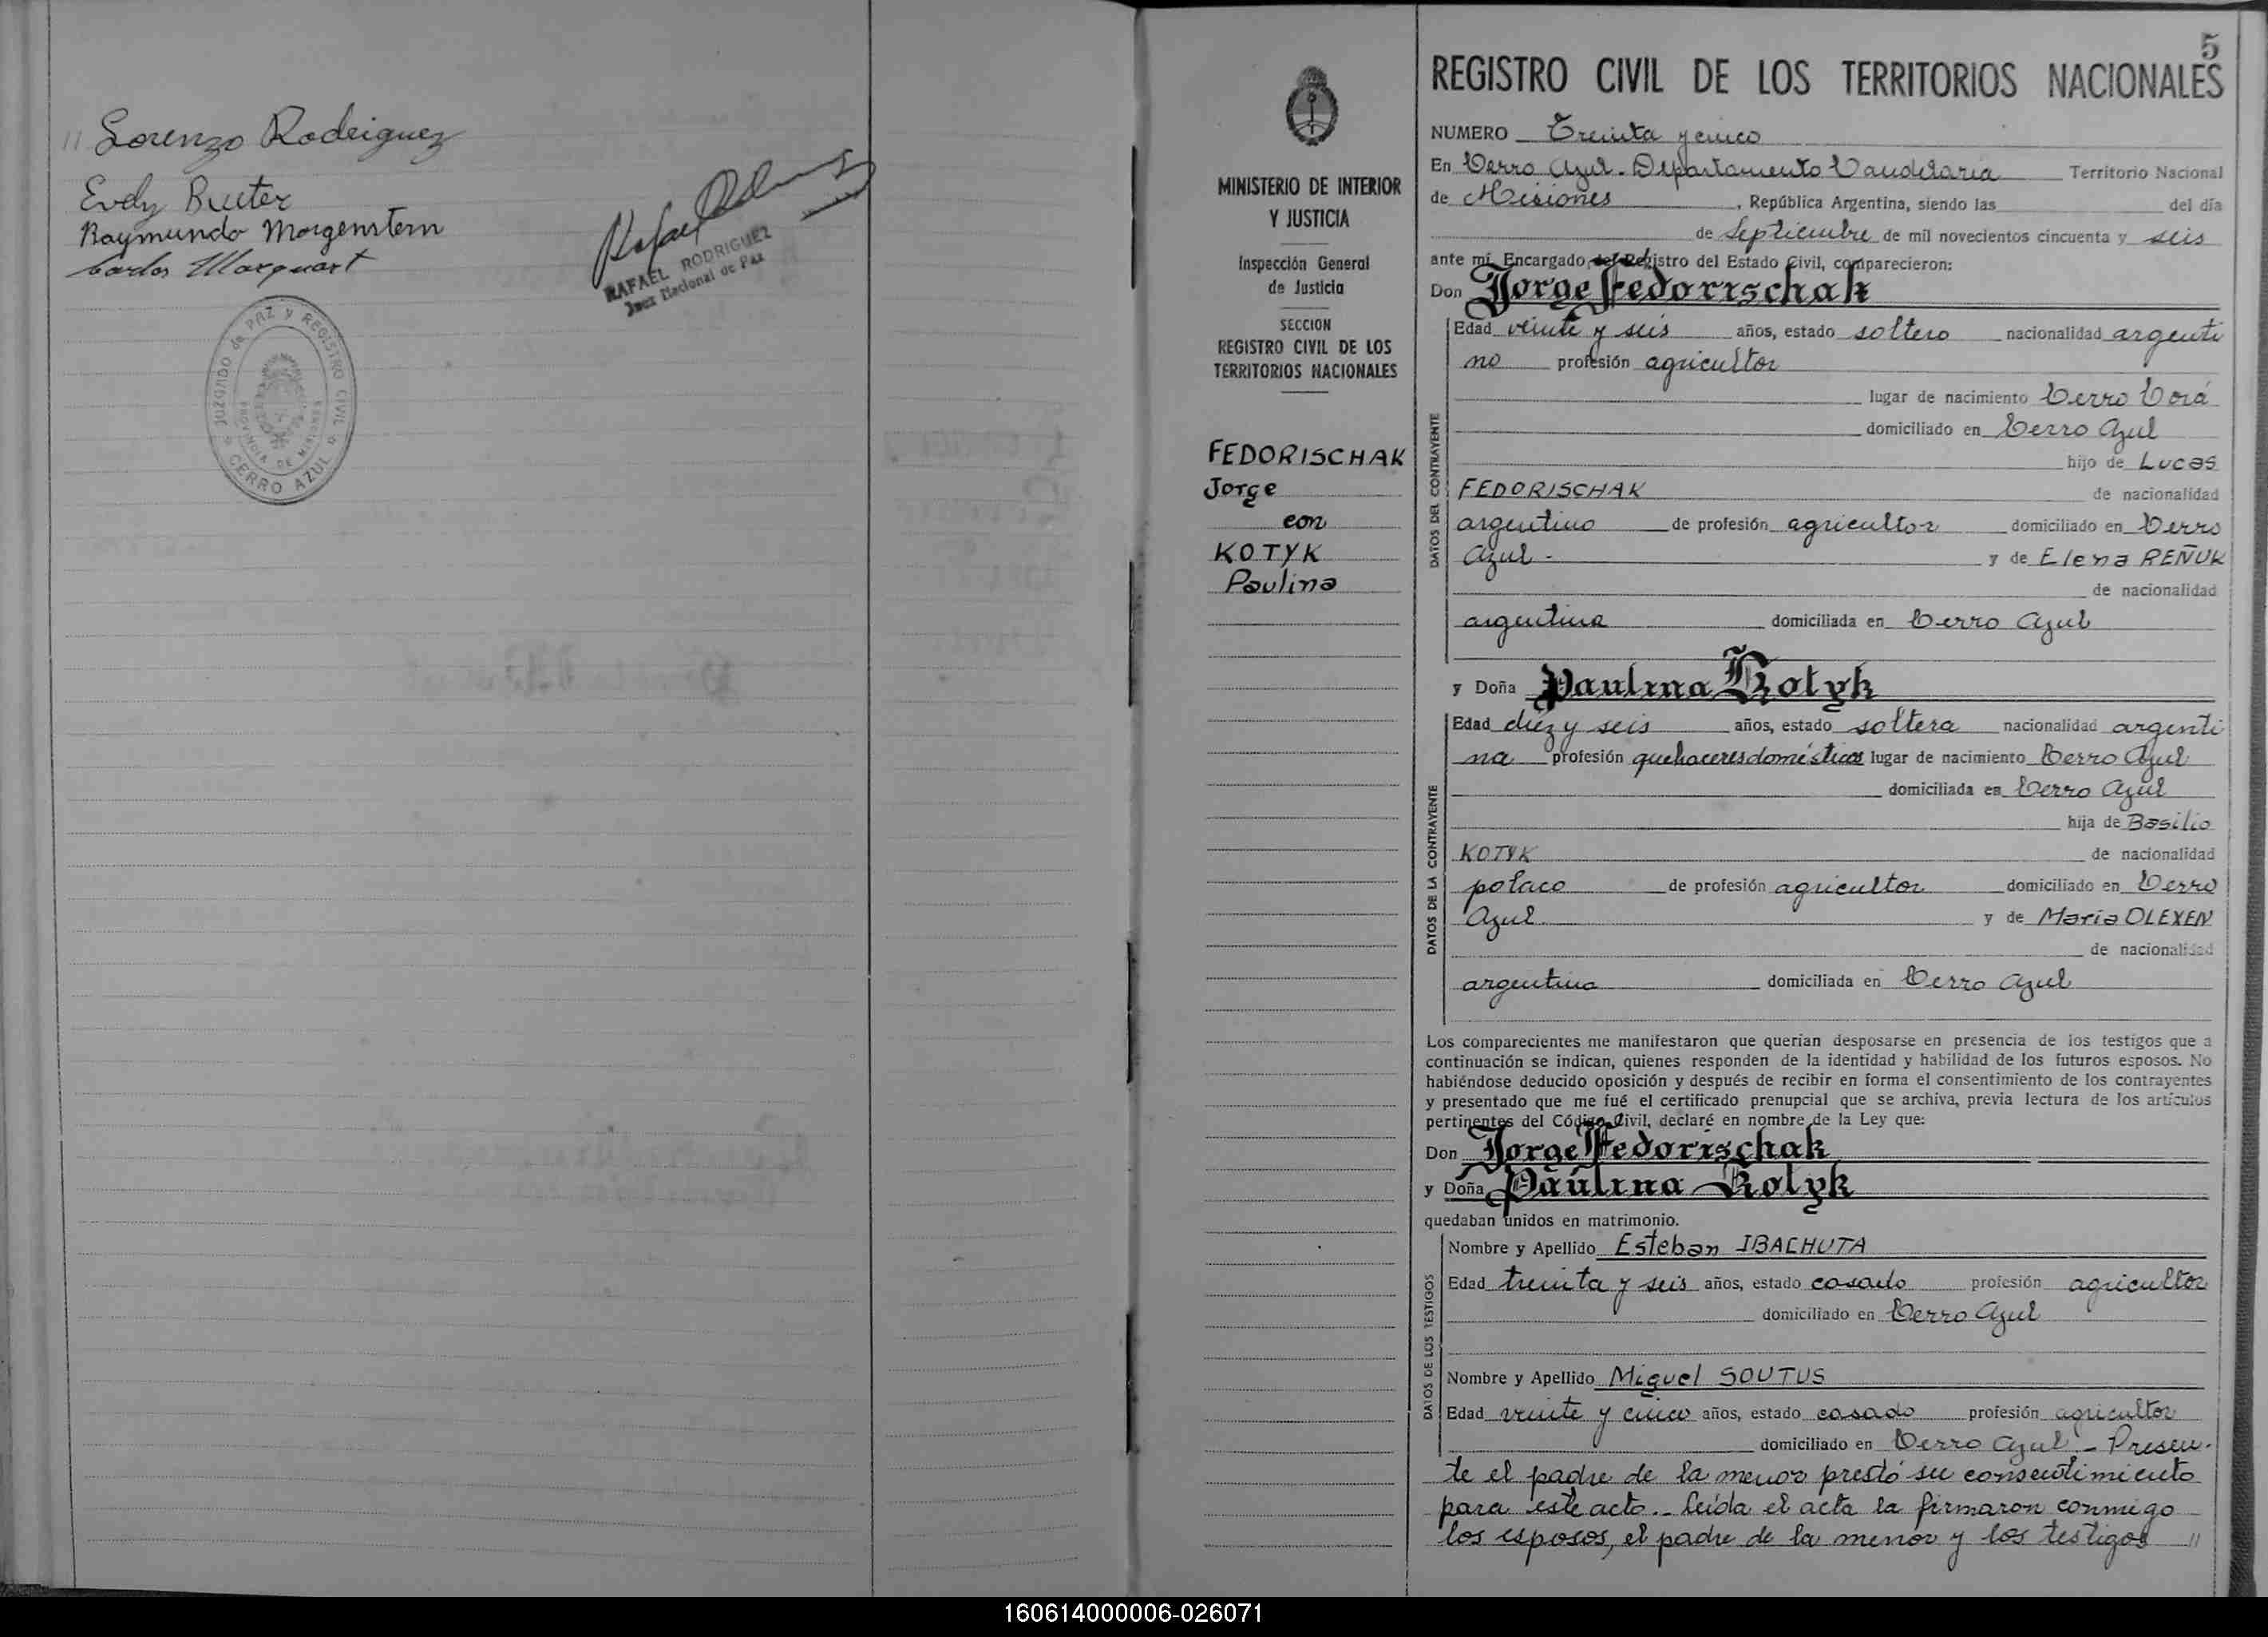 // Lorenzo Rodriguez
Evdy Buter
Raymundo Morgenstern
Carlos Marquart
RAFAEL RODRIGUEZ
Juez Nacional de Paz
JUZGADO de PAZ y REGISTRO CIVIL
PROVINCIA DE MISIONES
CERRO AZUL
MINISTERIO DE INTERIOR
Y JUSTICIA
Inspección General
de Justicia
SECCION
REGISTRO CIVIL DE LOS
TERRITORIOS NACIONALES
FEDORISCHAK
Jorge
con
KOTYK
Paulina
5
REGISTRO CIVIL DE LOS TERRITORIOS NACIONALES
NUMERO Treinta y cinco
En Cerro Azul - Departamento Candelaria Territorio Nacional
de Misiones, República Argentina, siendo las del día
de Septiembre de mil novecientos cincuenta y seis
ante mí, Encargado del Registro del Estado Civil, comparecieron:
Don Jorge Fedorischak
DATOS DEL CONTRAYENTE
Edad veinte y seis años, estado soltero nacionalidad argenti
no profesión agricultor
lugar de nacimiento Cerro Corá
domiciliado en Cerro Azul
hijo de Lucas
FEDORISCHAK de nacionalidad
argentino de profesión agricultor domiciliado en Cerro
Azul - y de Elena REÑUK
de nacionalidad
argentina domiciliada en Cerro Azul
y Doña Paulina Kotyk
DATOS DE LA CONTRAYENTE
Edad diez y seis años, estado soltera nacionalidad argenti
na profesión quehaceres domésticos lugar de nacimiento Cerro Azul
domiciliada en Cerro Azul
hija de Basilio
KOTYK de nacionalidad
polaco de profesión agricultor domiciliado en Cerro
Azul. y de Maria OLEXEN
de nacionalidad
argentina domiciliada en Cerro Azul
Los comparecientes me manifestaron que querían desposarse en presencia de los testigos que a
continuación se indican, quienes responden de la identidad y habilidad de los futuros esposos. No
habiéndose deducido oposición y después de recibir en forma el consentimiento de los contrayentes
y presentado que me fué el certificado prenupcial que se archiva, previa lectura de los artículos
pertinentes del Código Civil, declaré en nombre de la Ley que:
Don Jorge Fedorischak
y Doña Paulina Kotyk
quedaban unidos en matrimonio.
DATOS DE LOS TESTIGOS
Nombre y Apellido Esteban IBACHUTA
Edad treinta y seis años, estado casado profesión agricultor
domiciliado en Cerro Azul
Nombre y Apellido Miguel SOUTUS
Edad veinte y cinco años, estado casado profesión agricultor
domiciliado en Cerro Azul. - Presen-
te el padre de la menor prestó su consentimiento
para este acto. - Leída el acta la firmaron conmigo
los esposos, el padre de la menor y los testigos //
160614000006-026071